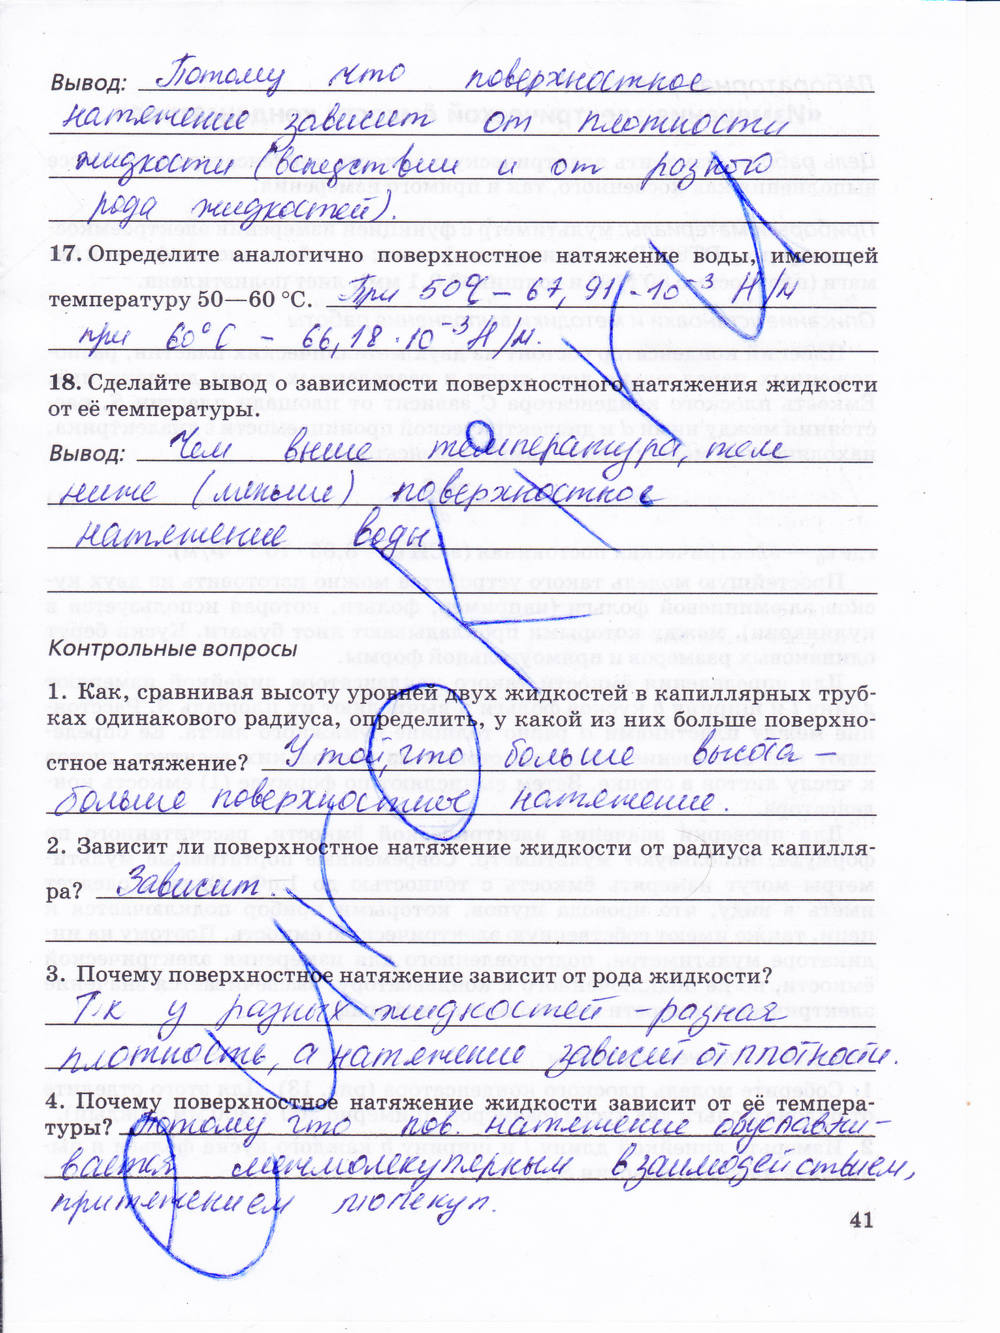 Вывод: Потому что поверхностное
натяжение зависит от плотности
жидкости (вследствии и от разного
рода жидкостей).
17. Определите аналогично поверхностное натяжение воды, имеющей
температуру 50—60 °C. При 50°C – 67,91·10⁻³ Н/м
при 60°C – 66,18·10⁻³ Н/м.
18. Сделайте вывод о зависимости поверхностного натяжения жидкости
от её температуры.
Вывод: Чем выше температура, тем
ниже (меньше) поверхностное
натяжение воды.
Контрольные вопросы
1. Как, сравнивая высоту уровней двух жидкостей в капиллярных труб-
ках одинакового радиуса, определить, у какой из них больше поверхно-
стное натяжение? что больше высота –
больше поверхностное натяжение.
2. Зависит ли поверхностное натяжение жидкости от радиуса капилля-
ра? Зависит.
3. Почему поверхностное натяжение зависит от рода жидкости?
Т.к у разных жидкостей – разная
плотность, а натяжение зависит от плотности.
4. Почему поверхностное натяжение жидкости зависит от её темпера-
туры? Потому что пов. натяжение обуславли-
вается межмолекулярным взаимодействием,
притяжением молекул.
41